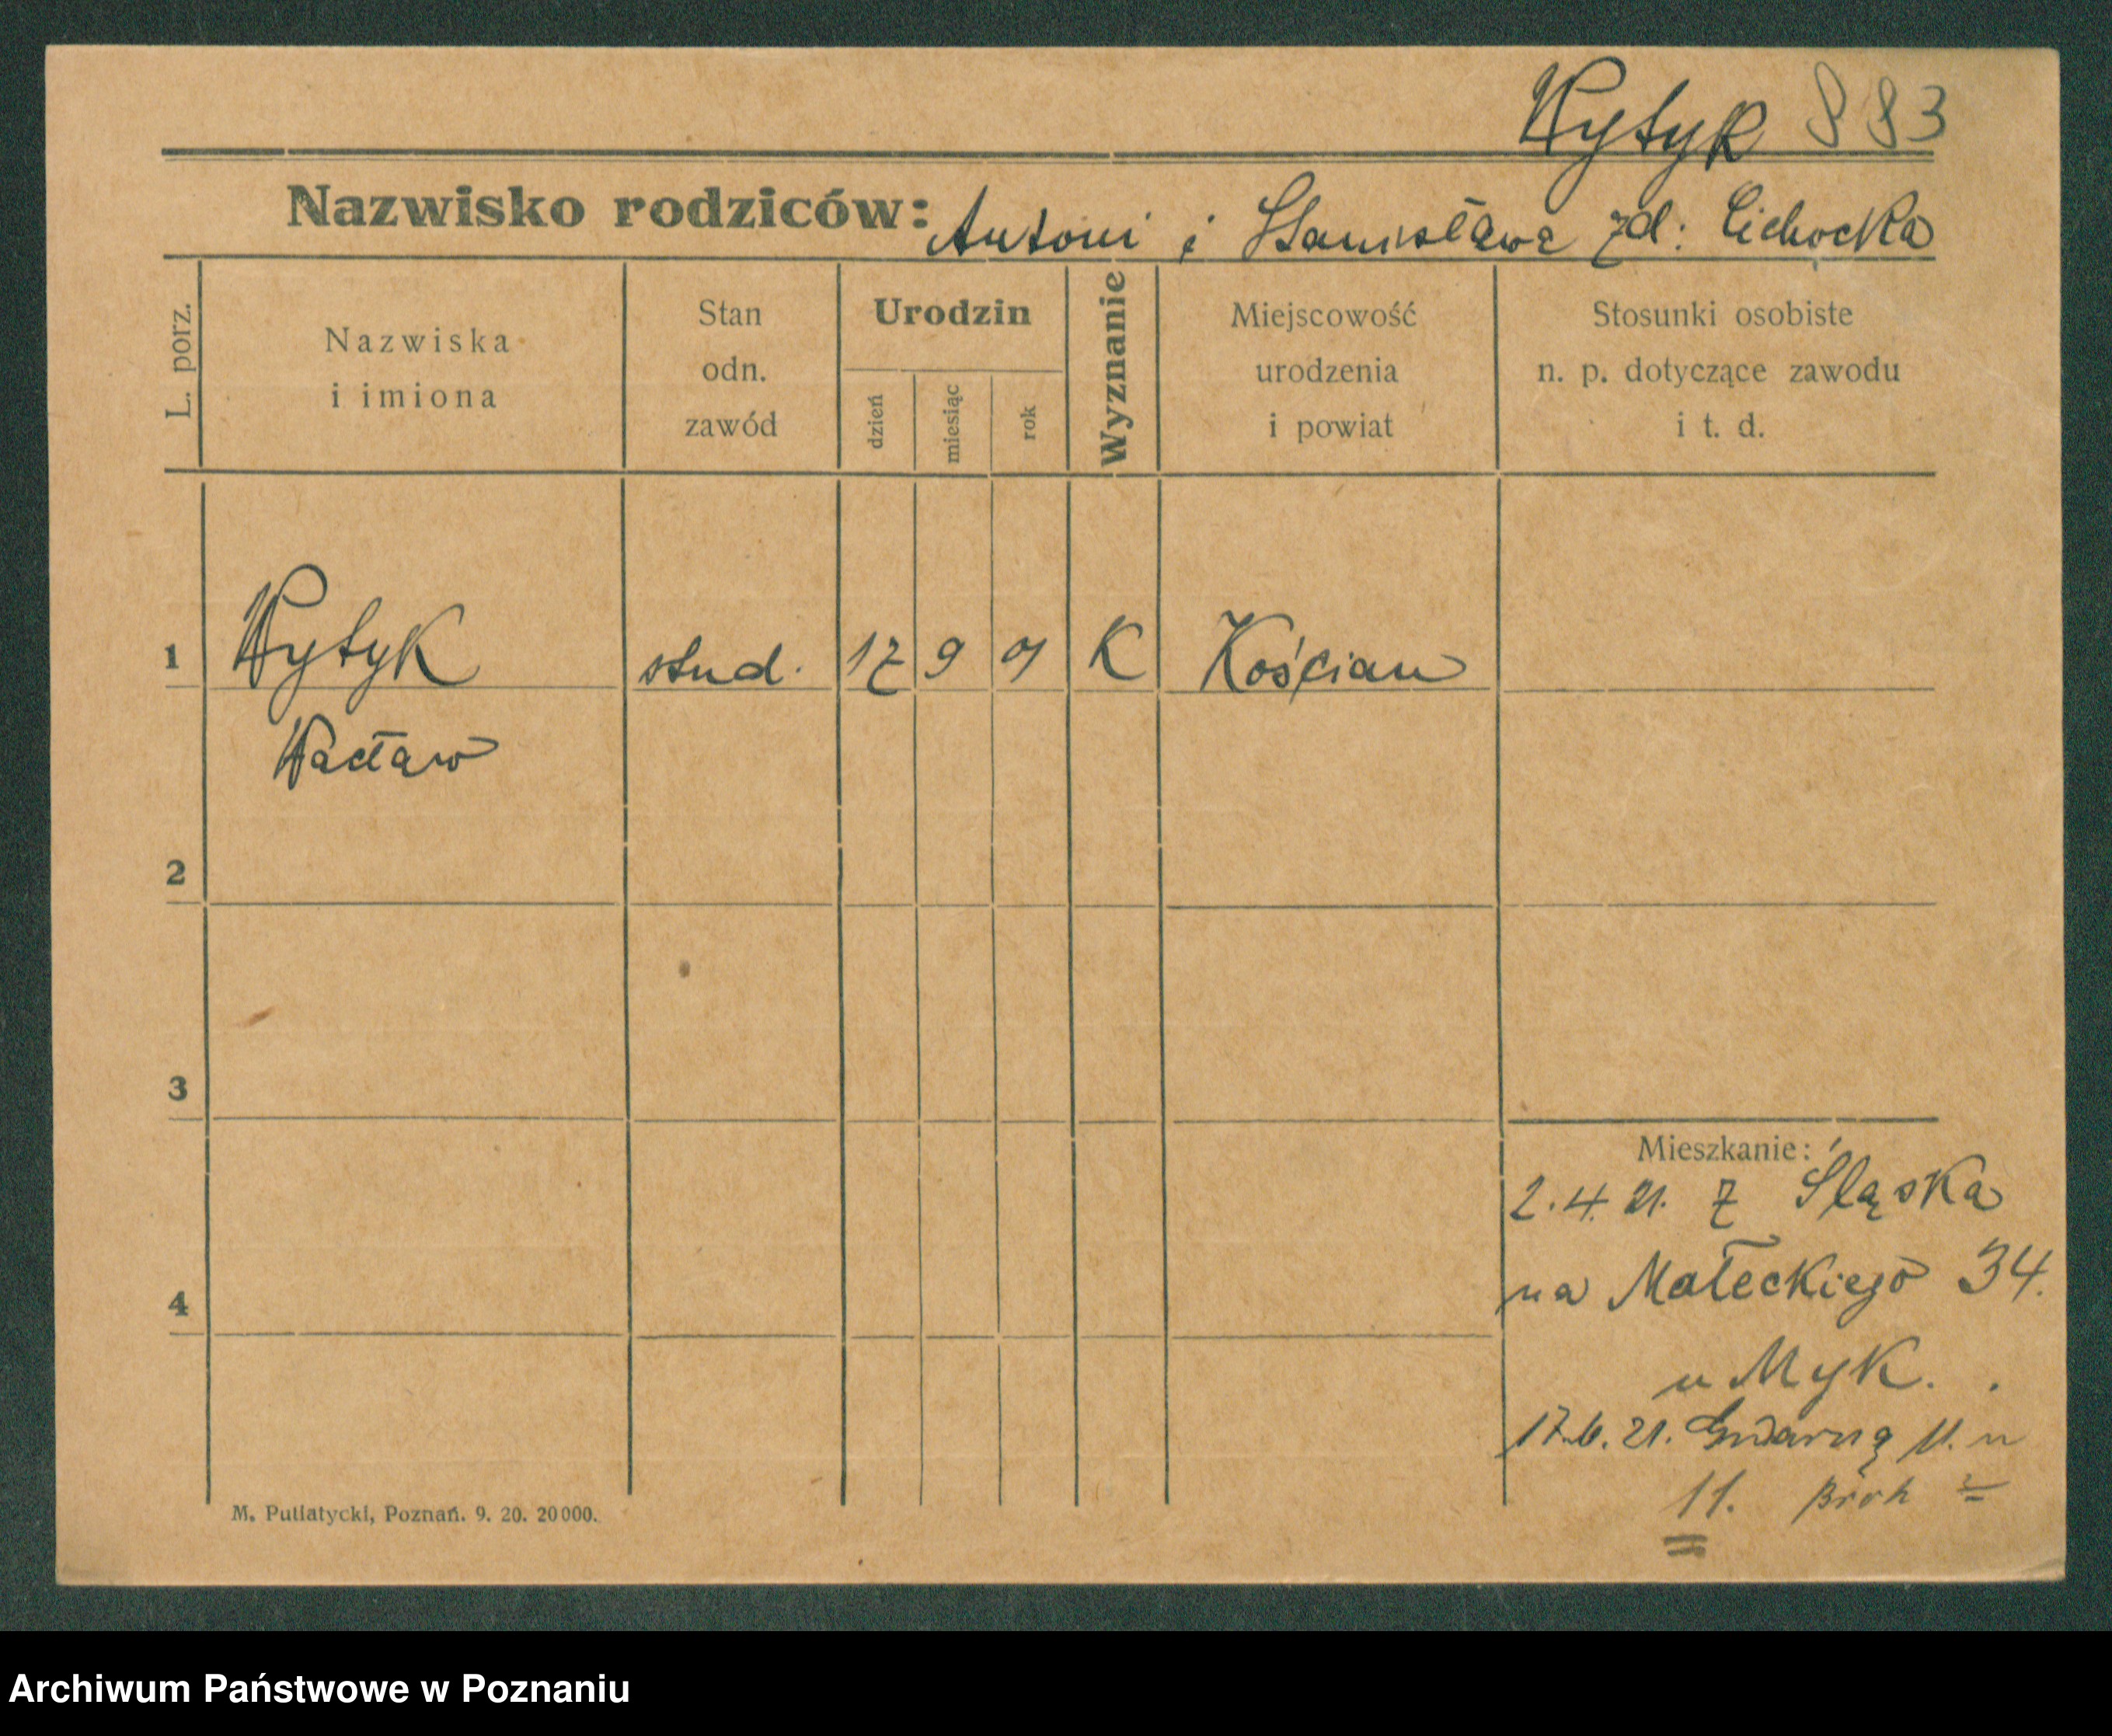 Wytyk 883
Nazwisko rodziców: Antoni i Stanisława zd: Cichocka
L. porz.
Nazwiska
i imiona
Stan
odn.
zawód
Urodzin
dzień
miesiąc
rok
Wyznanie
Miejscowość
urodzenia
i powiat
Stosunki osobiste
n. p. dotyczące zawodu
i t. d.
1 Wytyk stud. 17 9 01 K Kościan
Wacław
2
3
4
Mieszkanie:
2.4.21. z Śląska
na Małeckiego 34.
u Myk.
17.6.21. Gwarną 11. u
11.
M. Putiatycki, Poznań. 9. 20. 20000.
Archiwum Państwowe w Poznaniu